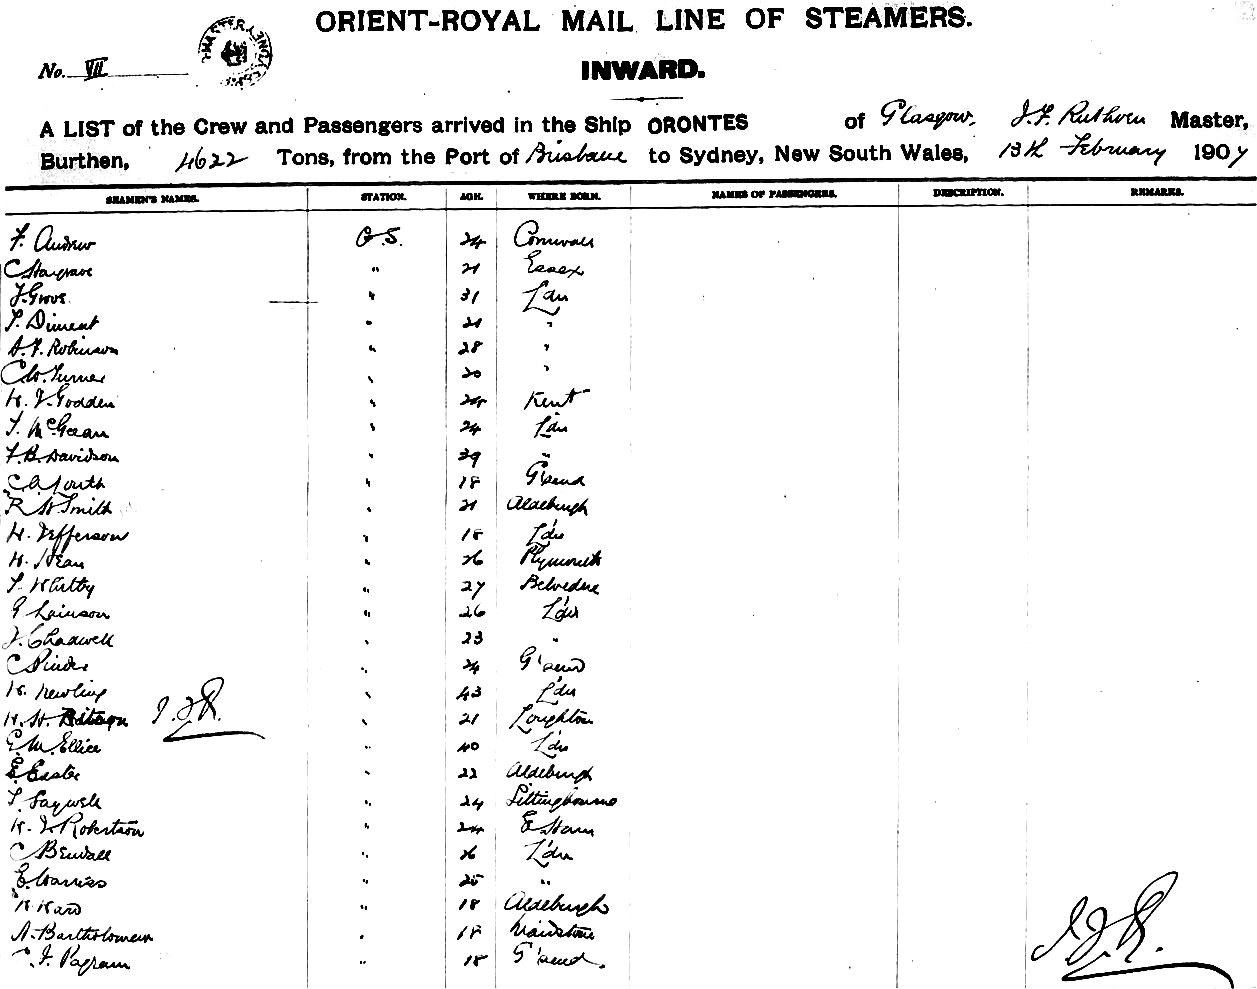 ORIENT-ROYAL MAIL LINE OF STEAMERS.
No. VII
INWARD.
A LIST of the Crew and Passengers arrived in the Ship ORONTES of Glasgow, J. F. Ruthven Master,
Burthen, 4622 Tons, from the Port of Brisbane to Sydney, New South Wales, 13th February 1907
SEAMEN'S NAMES. STATION. AGE. WHERE BORN. NAMES OF PASSENGERS. DESCRIPTION. REMARKS.
F. Andrew G.S. 24 Cornwall
C Hargrave " 21 Essex
J. Grove " 31 Ldn
T. Diment " 21 "
A. F. Robinson " 28 "
C W. Turner " 20 "
H. J. Godden " 24 Kent
J. McGean " 24 Ldn
F. B. Davidson " 39 "
C A Youth " 18 G'send
R H Smith " 21 Aldeburgh
H. Jefferson " 18 L'dn
H. Dean " 26 Plymouth
T. Whitby " 27 Belvedere
G Lainson " 26 L'dn
J. Chadwell " 23 "
C Pinder " 24 G'send
H. Newling " 43 L'dn
H. W. " 21 Loughton
J.F.R.
E. M. Ellice " 40 L'dn
E. Easter " 22 Aldeburgh
T. Saywell " 24 Sittingbourne
H. J. Robertson " 24 E Ham
C Bendall " 26 L'dn
E. Harriss " 25 "
H Ward " 18 Aldeburgh
A. Bartholomew " 18 Maidstone
C. F. Pagram " 18 G'send.
J.F.R.